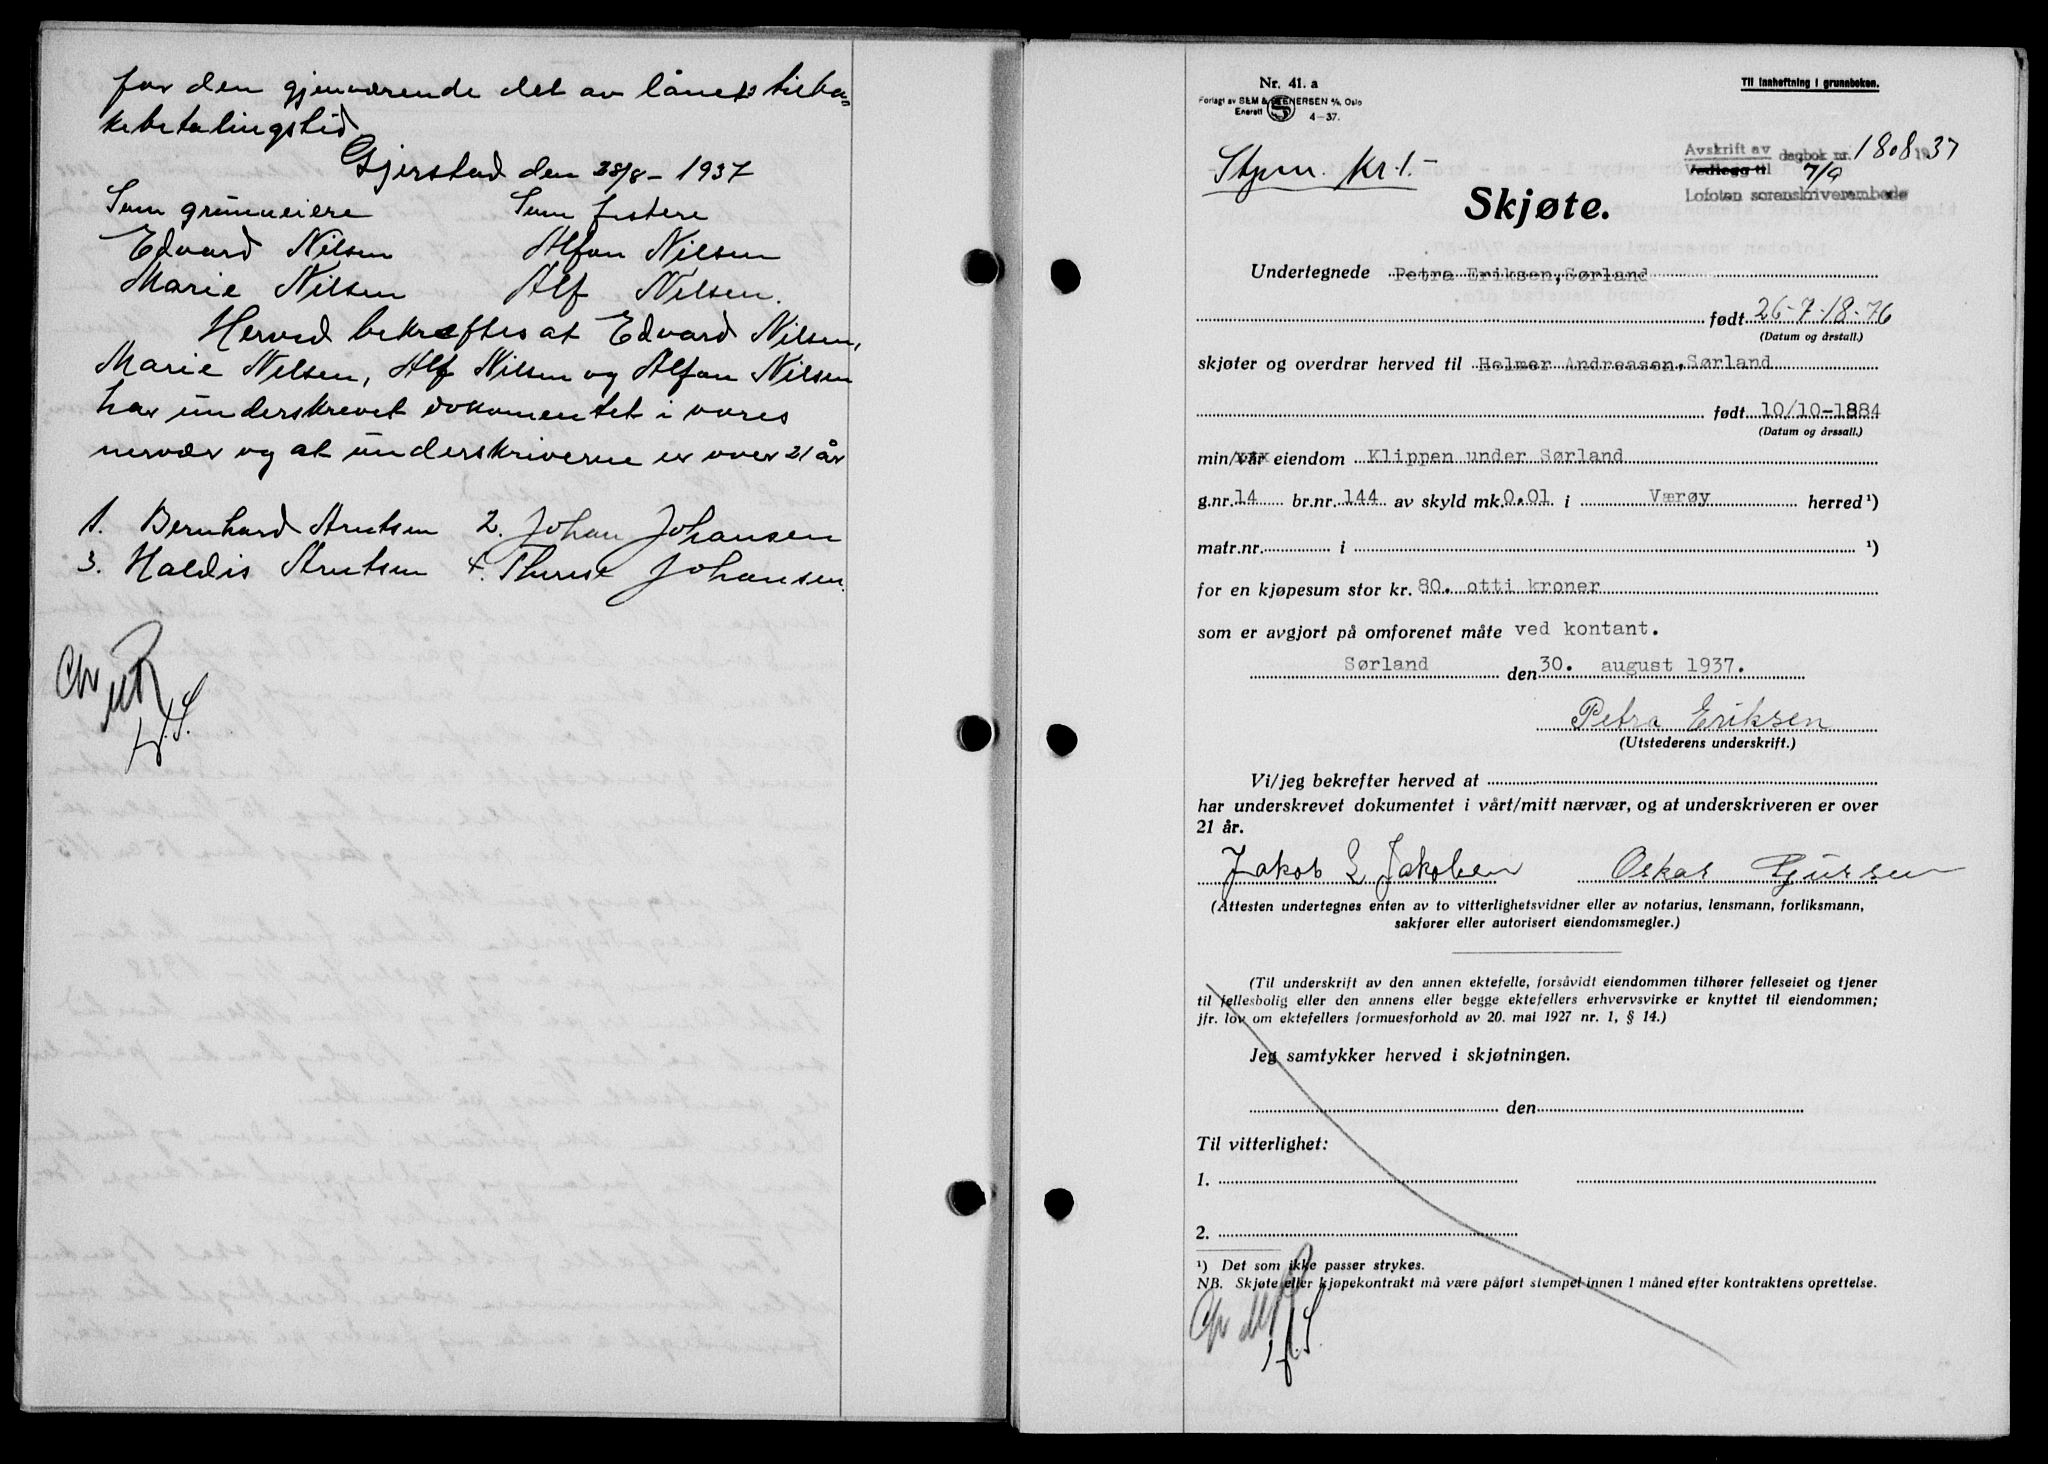 for den gjenværende del av lånets tilba-
kebetalingstid
Gjerstad den 28/8 - 1937
Som grunneiere Som festere
Edvard Nilsen Alfon Nilsen
Marie Nilsen Alf Nilsen.
Herved bekræftes at Edvard Nilsen,
Marie Nilsen, Alf Nilsen og Alfon Nilsen
har underskrevet dokumentet i vores
nervær og at underskriverne er over 21 år
1. Bernhard Arntsen 2. Johan Johansen
3. Haldis Arntsen 4. Therese Johansen.
Nr. 41. a
Forlagt av SEM & STENERSEN A/S, Oslo
Enerett 4-37.
Til innheftning i grunnboken.
Stpm. kr. 1.-
Avskrift av
Vedlegg til dagbok nr. 1808 1937
7/9
Lofoten sorenskriverembede
Skjøte.
Undertegnede Petra Eriksen, Sørland
født 26-7-18-76
(Datum og årstall.)
skjøter og overdrar herved til Helmer Andreasen, Sørland
født 10/10-1884
(Datum og årssall.)
min/vår eiendom Klippen under Sørland
g.nr. 14 br.nr. 144 av skyld mk. 0.01 i Værøy herred ¹)
matr.nr. i ¹)
for en kjøpesum stor kr. 80. otti kroner
som er avgjort på omforenet måte ved kontant.
Sørland den 30. august 1937.
Petra Eriksen
(Utstederens underskrift.)
Vi/jeg bekrefter herved at
har underskrevet dokumentet i vårt/mitt nærvær, og at underskriveren er over
21 år.
Jakob E Jakobsen Oskar
(Attesten undertegnes enten av to vitterlighetsvidner eller av notarius, lensmann, forliksmann,
sakfører eller autorisert eiendomsmegler.)
(Til underskrift av den annen ektefelle, forsåvidt eiendommen tilhører felleseiet og tjener
til fellesbolig eller den annens eller begge ektefellers erhvervsvirke er knyttet til eiendommen;
jfr. lov om ektefellers formuesforhold av 20. mai 1927 nr. 1, § 14.)
Jeg samtykker herved i skjøtningen.
den
Til vitterlighet:
1.
2.
¹) Det som ikke passer strykes.
NB. Skjøte eller kjøpekontrakt må være påført stempel innen 1 måned efter kontraktens oprettelse.